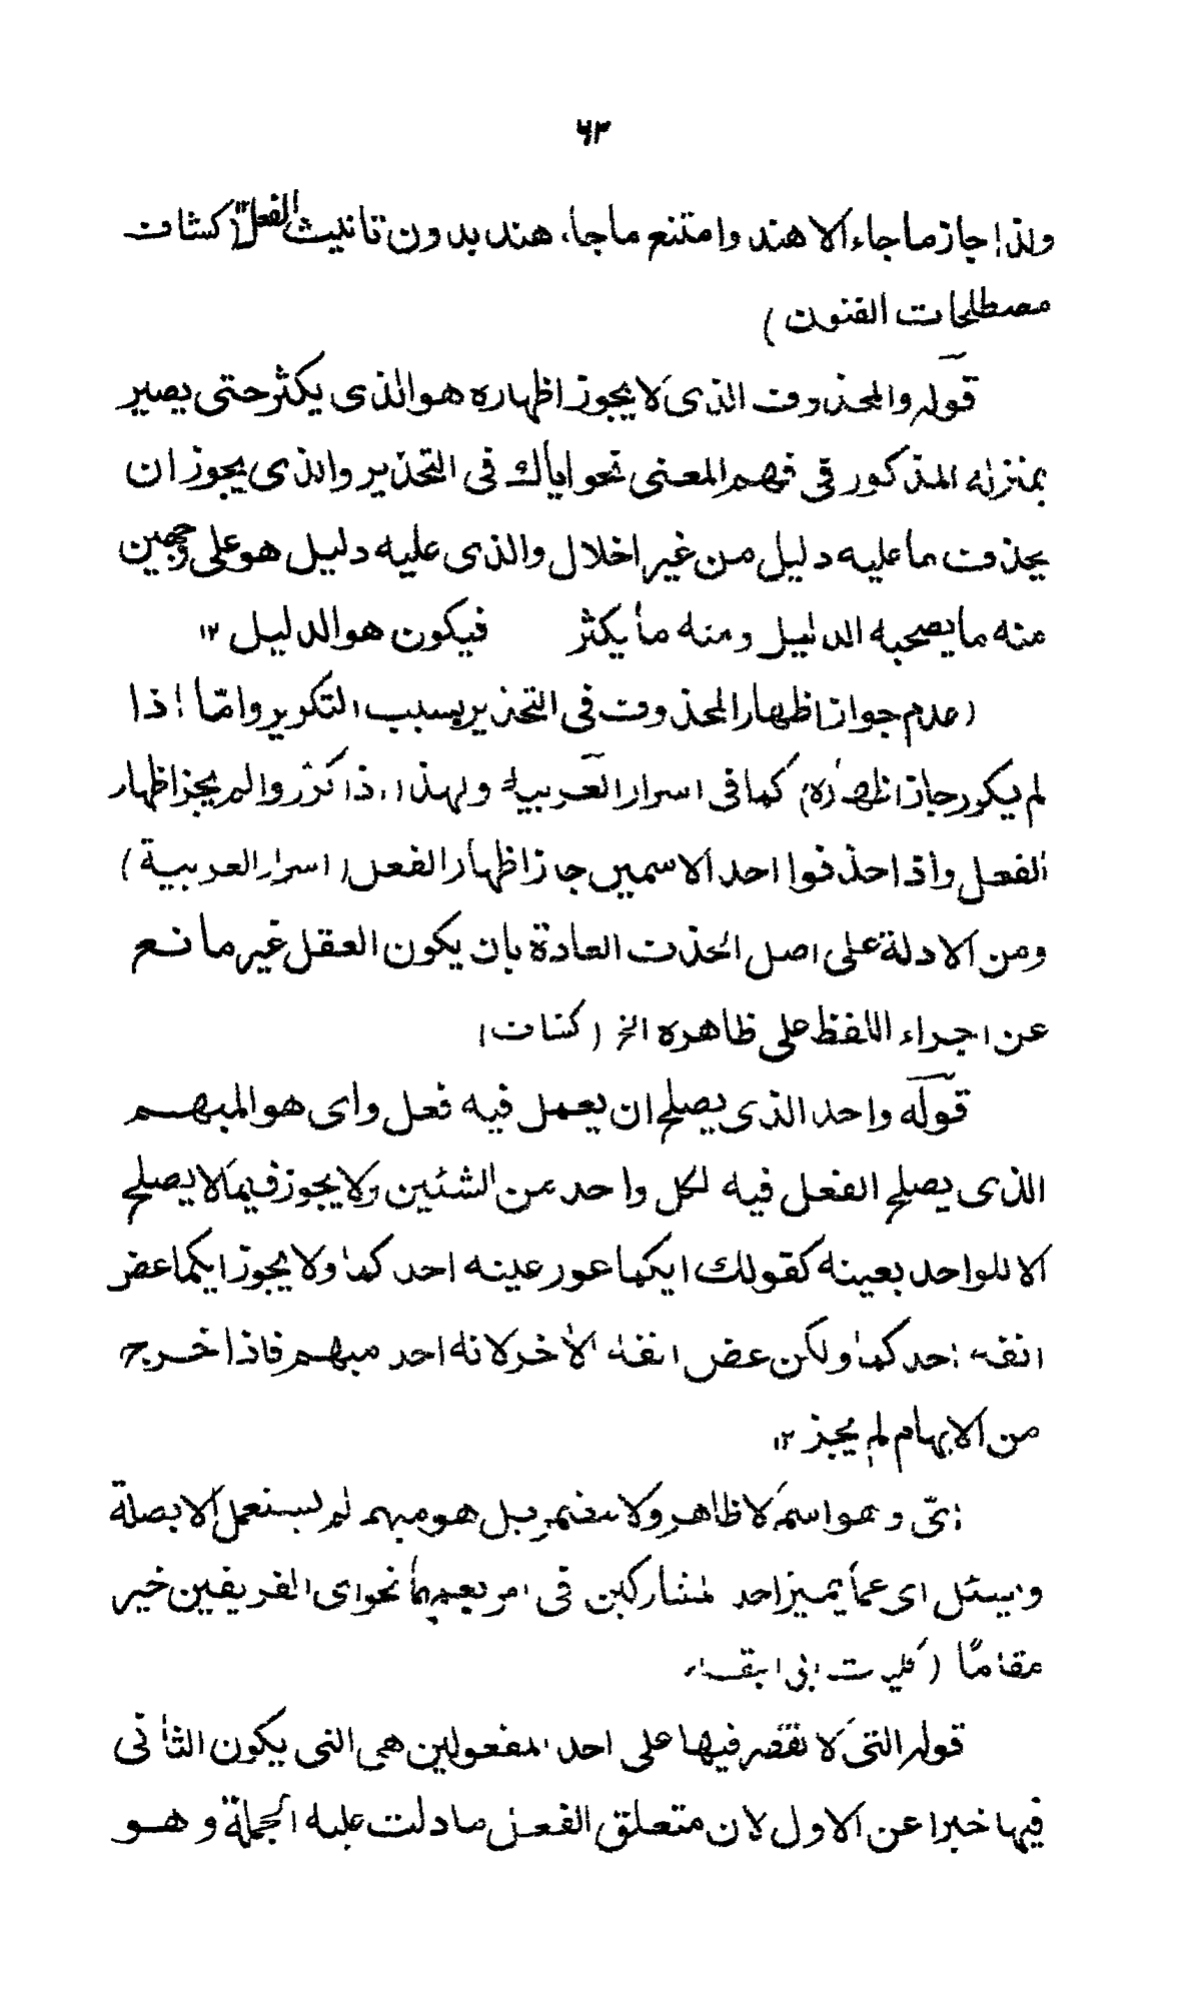 ۶۳
ولذا جاز ما جاء الا هند وامتنع ما جاء هند بدون تانيث الفعل ۱۲ (کشاف
مصطلحات الفنون)
قوله والمحذوف الذى لا يجوز اظهاره هو الذى يكثر حتى يصير
بمنزله المذكور فى فهم المعنى نحو اياك فى التحذير والذى يجوز ان
يحذف ما عليه دليل من غير اخلال والذى عليه دليل هو على وجهين
منه ما يصحبه الدليل ومنه ما يكثر فيكون هو الدليل ۱۲
(عدم جواز اظهار المحذوف فى التحذير بسبب التكرير واما اذا
لم يكرر جاز اظهاره) كما فى اسرار العربية ولهذا اذا كرروا لم يجز اظهار
الفعل واذا حذفوا احد الاسمين جاز اظهار الفعل (اسرار العربية)
ومن الادلة على اصل الحذف العادة بان يكون العقل غير مانع
عن اجراء اللفظ على ظاهره الخ (كشاف)
قوله واحد الذى يصلح ان يعمل فيه فعل واى هو المبهم
الذى يصلح الفعل فيه لكل واحد من الشئين ولا يجوز فيما لا يصلح
الا للواحد بعينه كقولك ايكما عور عينه احدكما ولا يجوز ايكما عض
انفه احدكما ولكن عض انفه الأخر لانه احد مبهم فاذا خرج
من الابهام لم يجز ۱۲
اىّ وهو اسم لا ظاهر ولا مضمر بل هو مبهم لم يستعمل الا بصلة
ويسئل اى عما يميز احد المتشاركين فى امر يعمهما نحو اى الفريقين خير
مقامًا (كليات ابى البقاء
قوله التى لا تقتصر فيها على احد المفعولين هى التى يكون الثانى
فيها خبرا عن الاول لان متعلق الفعل ما دلت عليه الجملة وهو